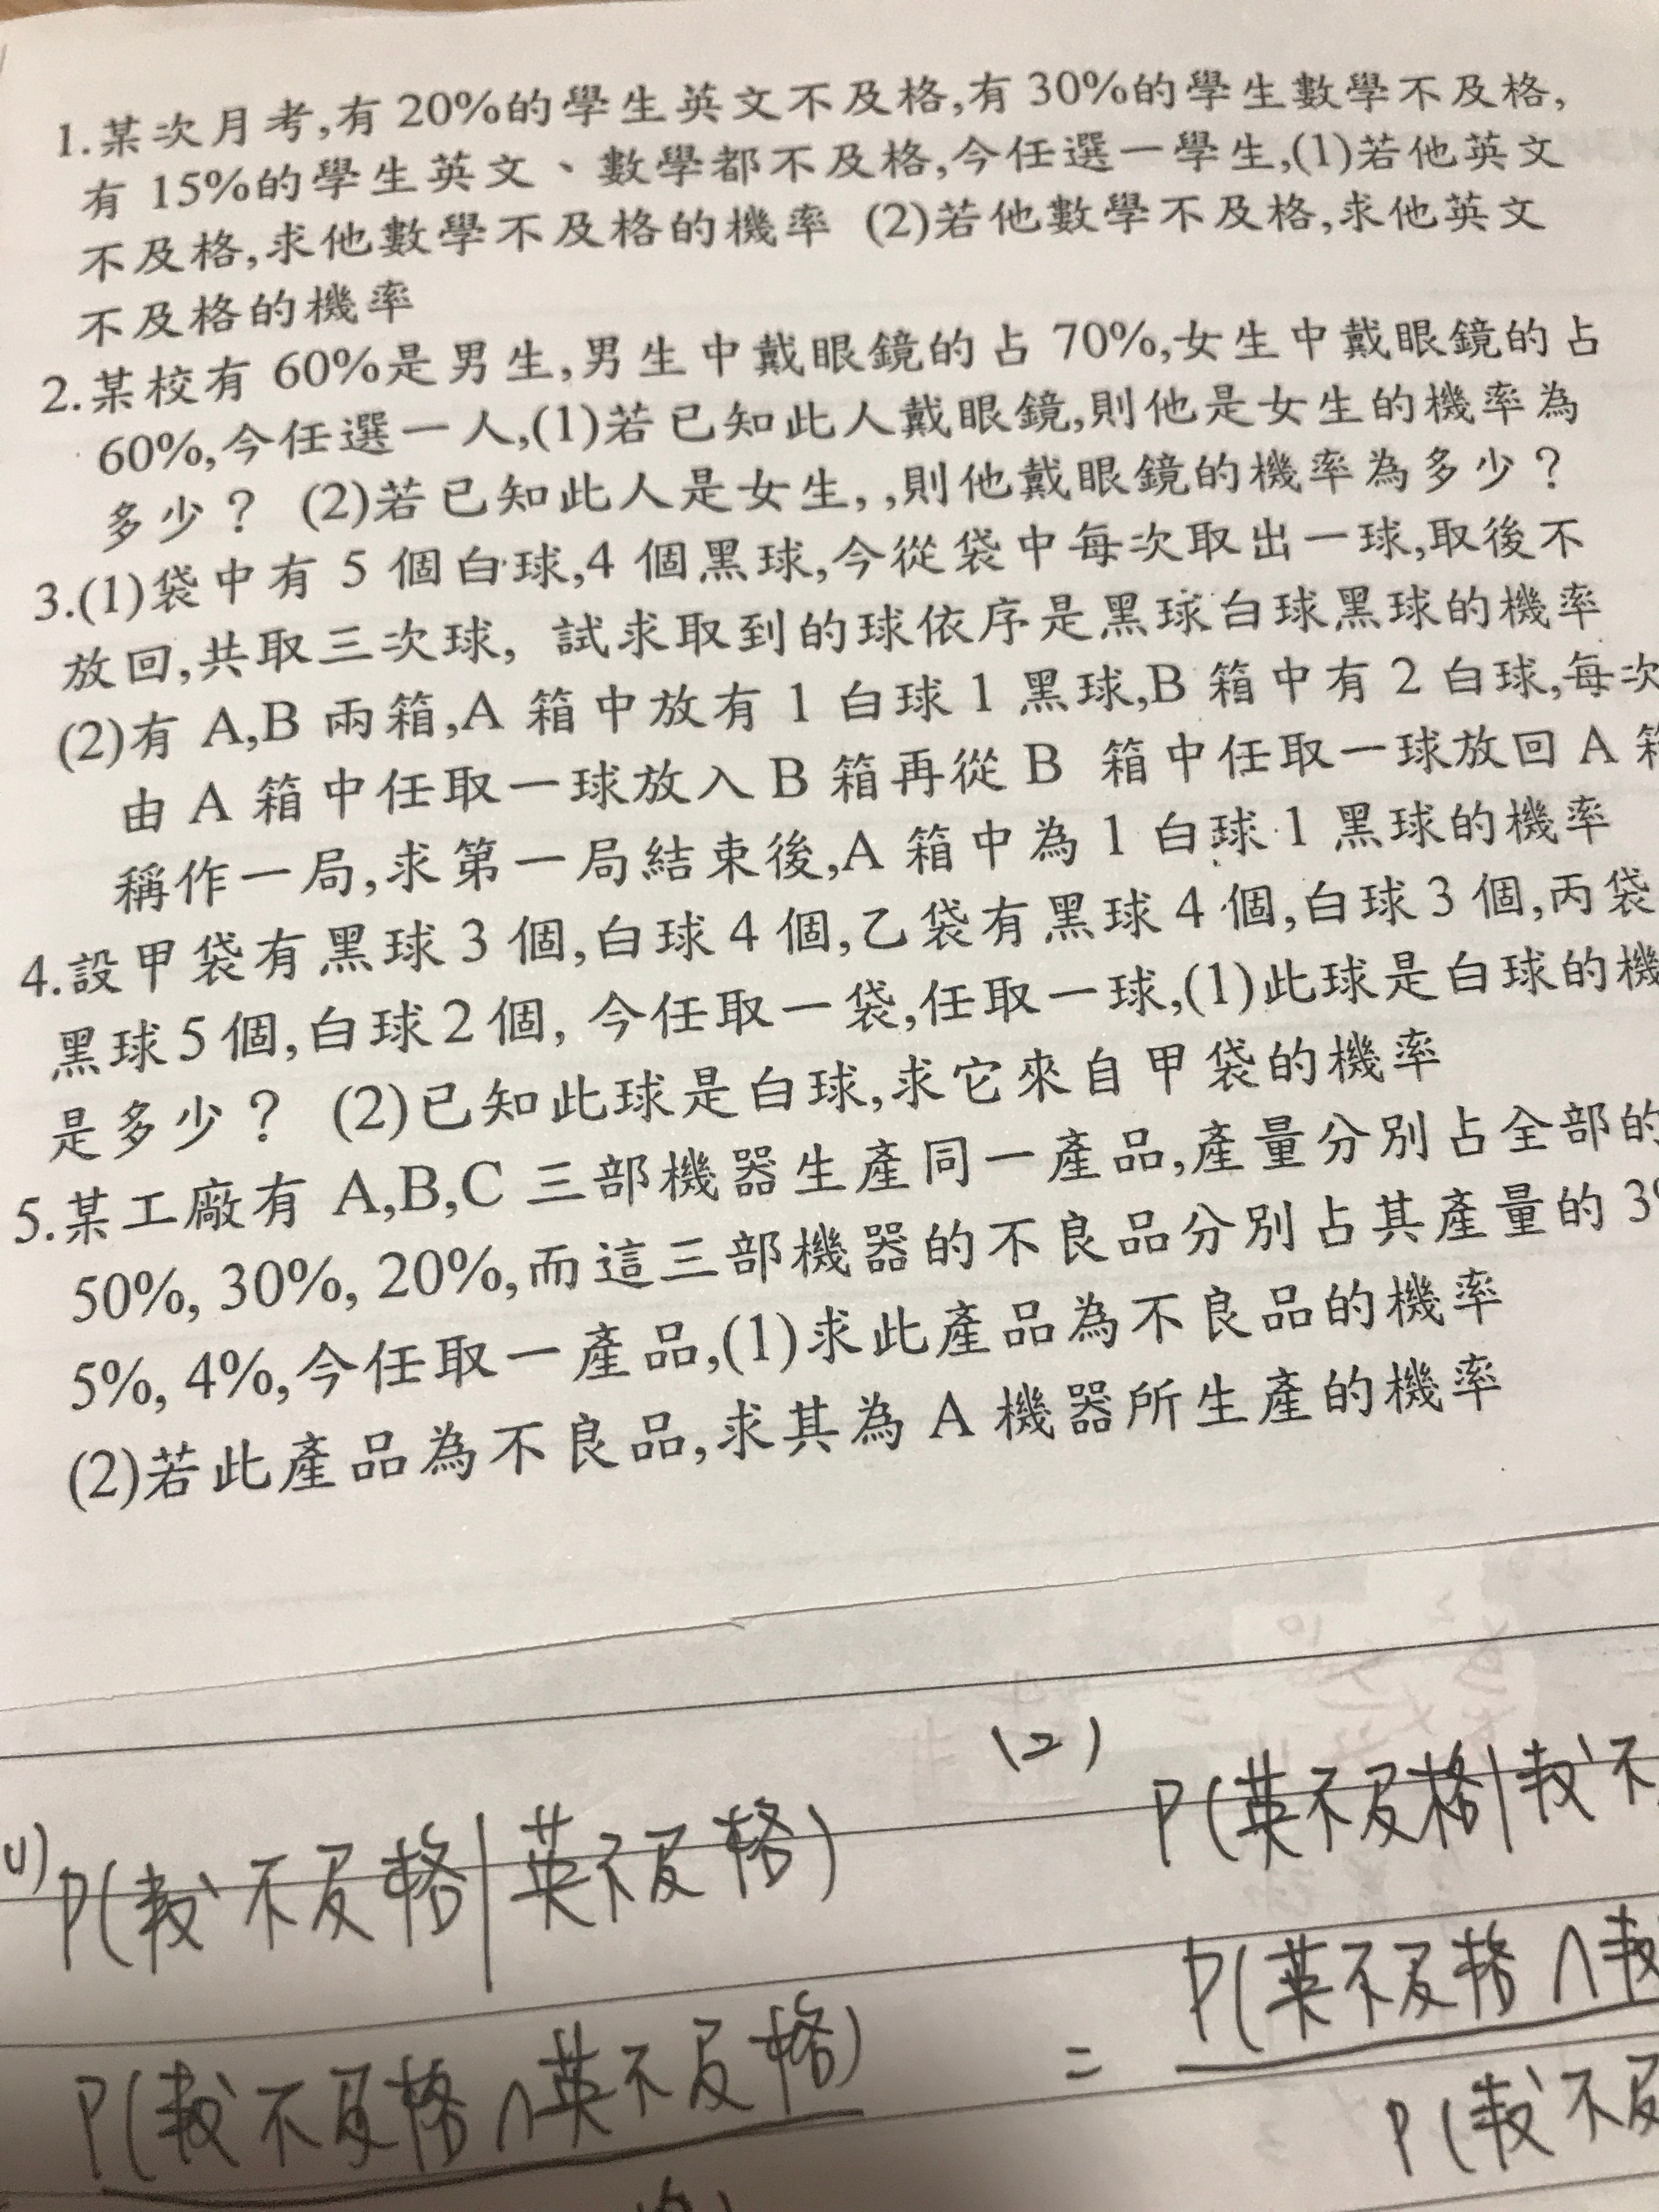 1.某次月考,有20%的學生英文不及格,有30%的學生數學不及格,
有 15%的學生英文、數學都不及格,今任選一學生,(1)若他英文
不及格,求他數學不及格的機率 (2)若他數學不及格,求他英文
不及格的機率
2.某校有 60%是男生,男生中戴眼鏡的占 70%,女生中戴眼鏡的占
60%,今任選一人,(1)若已知此人戴眼鏡,則他是女生的機率為
多少? (2)若已知此人是女生, ,則他戴眼鏡的機率為多少?
3.(1)袋中有 5 個白球,4 個黑球,今從袋中每次取出一球,取後不
放回,共取三次球, 試求取到的球依序是黑球白球黑球的機率
(2)有 A,B 兩箱,A 箱中放有 1 白球 1 黑球,B 箱中有 2 白球,每次
由 A 箱中任取一球放入 B 箱再從 B 箱中任取一球放回 A
稱作一局,求第一局結束後,A 箱中為 1 白球 1 黑球的機率
4.設甲袋有黑球 3 個,白球 4 個,乙袋有黑球 4 個,白球 3 個,丙袋
黑球 5 個,白球 2 個, 今任取一袋,任取一球,(1)此球是白球的機
是多少? (2)已知此球是白球,求它來自甲袋的機率
5.某工廠有 A,B,C 三部機器生產同一產品,產量分別占全部的
50%, 30%, 20%,而這三部機器的不良品分別占其產量的 3
5%, 4%,今任取一產品,(1)求此產品為不良品的機率
(2)若此產品為不良品,求其為 A 機器所生產的機率
(2)
P(英不及格|数不
(1) P(数不及格|英不及格)
= P(英不及格∩数
P(数不及格∩英不及格)
P(数不及